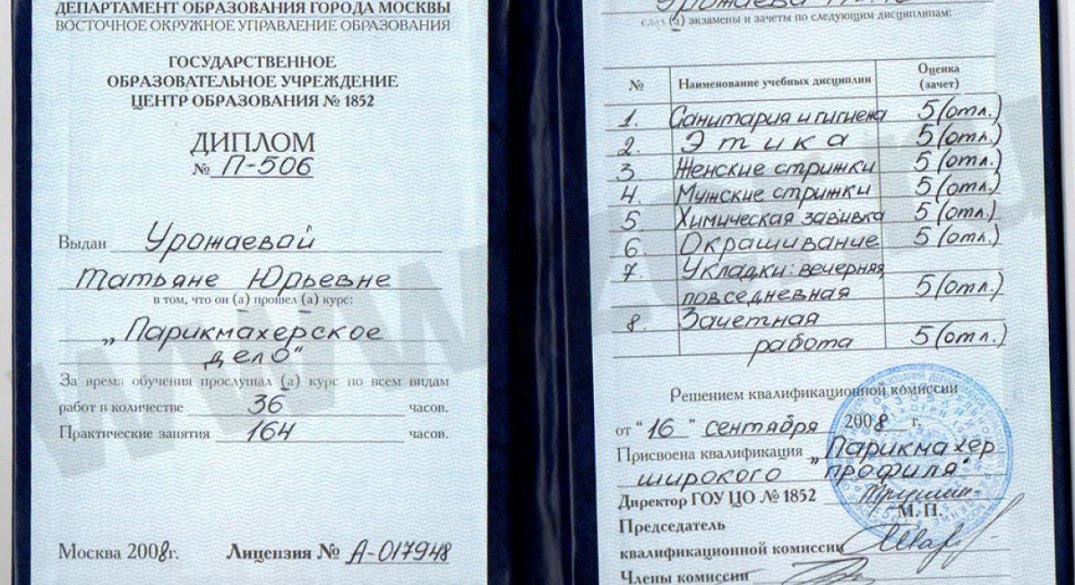 ДЕПАРТАМЕНТ ОБРАЗОВАНИЯ ГОРОДА МОСКВЫ
ВОСТОЧНОЕ ОКРУЖНОЕ УПРАВЛЕНИЕ ОБРАЗОВАНИЯ
ГОСУДАРСТВЕННОЕ
ОБРАЗОВАТЕЛЬНОЕ УЧРЕЖДЕНИЕ
ЦЕНТР ОБРАЗОВАНИЯ № 1852
ДИПЛОМ
№ П-506
Выдан Урожаевай
Татьяне Юрьевне
в том, что он (а) прошел (а) курс:
„Парикмахерское
дело"
За время обучения прослушал (а) курс по всем видам
работ в количестве 36 часов.
Практические занятия 164 часов.
Москва 2008г. Лицензия № А-017948
Урожаева
сдал (а) экзамены и зачеты по следующим дисциплинам:
№ Наименование учебных дисциплин Оценка (зачет)
1. Санитария и гигиена 5 (отл.)
2. Этика 5 (отл.)
3 Женские стрижки 5 (отл.)
4. Мужские стрижки 5 (отл.)
5. Химическая завивка 5 (отл.)
6. Окрашивание 5 (отл.)
7. Укладки: вечерняя,
повседневная 5 (отл.)
8. Зачетная
работа 5 (отл.)
Решением квалификационной комиссии
от "16" сентября 2008 г.
Присвоена квалификация „Парикмахер
широкого профиля"
Директор ГОУ ЦО № 1852
М. П.
Председатель
квалификационной комиссии
Члены комиссии